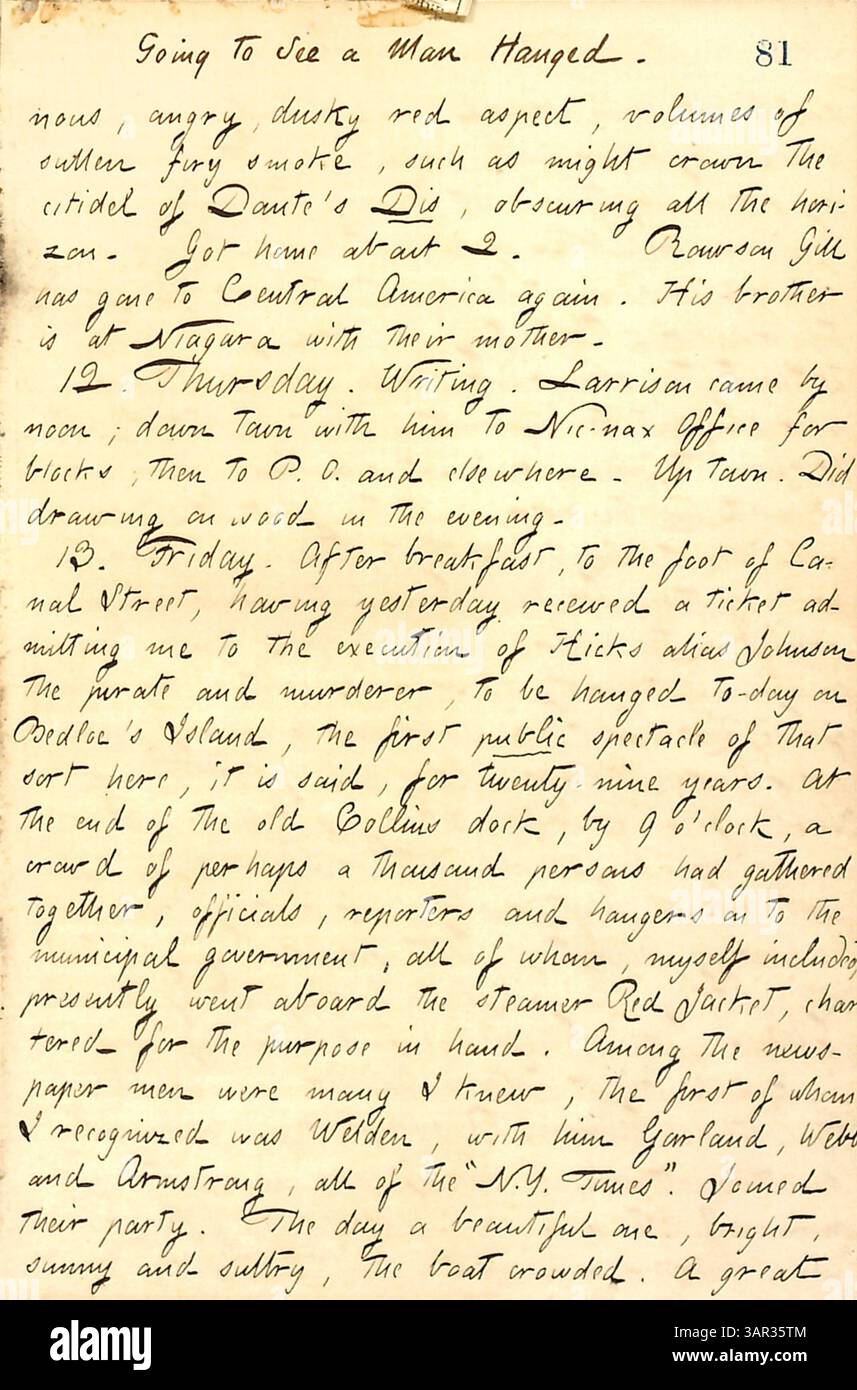 Going to See a Man Hanged. 81
nous, angry, dusky red aspect, volumes of
sullen fiery smoke, such as might crown the
citidel of Dante's Dis, obscuring all the hori-
zon. Got home about 2. Rawson Gill
has gone to Central America again. His brother
is at Niagara with their mother.
12. Thursday. Writing. Larrison came by
noon; down town with him to Nic-nax Office for
blocks, then to P. O. and elsewhere. Up town. Did
drawing on wood in the evening.
13. Friday. After breakfast, to the foot of Ca-
nal Street, having yesterday received a ticket ad-
mitting me to the execution of Hicks alias Johnson
the pirate and murderer, to be hanged to-day on
Bedloe's Island, the first public spectacle of that
sort here, it is said, for twenty-nine years. At
the end of the old Collins dock, by 9 o'clock, a
crowd of perhaps a thousand persons had gathered
together, officials, reporters and hangers on to the
municipal government, all of whom, myself included,
presently went aboard the steamer Red Jacket, char
tered for the purpose in hand. Among the news-
paper men were many I knew, the first of whom
I recognized was Welden, with him Garland, Webb
and Armstrong, all of the "N.Y. Times". Joined
their party. The day a beautiful one, bright,
sunny and sultry, the boat crowded. A great
alamy
Image ID: 3AR35TM
www.alamy.com